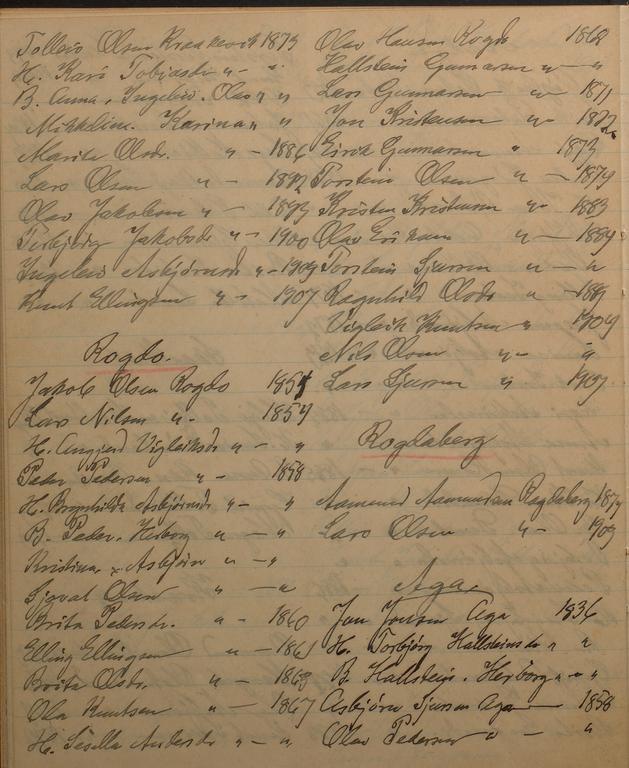 Tolleiv Olsen Kraakevik 1873
H. Kari Tobiasdr " - "
B. Anna, Ingeleiv. Olav " "
Mikkeline. Karina " "
Marita Olsdr. " - 1886
Lars Olsen " - 1892
Olav Jakobsen " - 1893
Torbjørg Jakobsdr " - 1900
Ingeleiv Asbjørnsdr " - 1904
Knut Ellingsen " - 1907
Rogdo.
Jakob Olsen Rogdo 1854
Lars Nilsen " - 1854
H. Angjerd Vigleiksdr " - "
Peder Pedersen " - 1858
H. Brynhilda Asbjørnsdr " - "
B. Peder. Herborg " - "
Kristina, Asbjørn " - "
Sjovat Olsen " - "
Brita Pedersdr. " - 1860
Elling Ellingsen " - 1861
Brita Olsdr. " - 1863
Ola Knutsen " - 1867
H. Sesella Andersdr " - "
Olav Hansen Rogdo 1868
Hallstein Gunnarsen " - "
Lars Gunnarsen " - 1871
Jon Kristensen " - 1872
Eirik Gunnarsen " 1873
Torstein Olsen " - 1879
Kristen Kristensen " - 1883
Olav Eriksen " - 1884
Torstein Sjursen " - "
Ragnhild Olsdr " - 1887
Vigleik Knutsen " 1904
Nils Olsen " - "
Lars Sjursen " 1907
Rogdaberg
Aamund Aamundsen Rogdaberg 1874
Lars Olsen " - 1903
Aga
Jon Jonsen Aga 1836
H. Torbjørg Hallsteinsdr " "
B. Hallstein. Herborg " - "
Asbjørn Sjursen Aga 1858
Olav Pedersen " - "